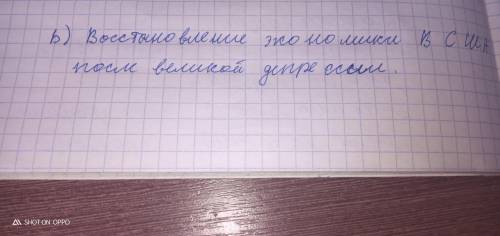 b) Восстановление экономики В США
посл великой депрессии.
SHOT ON OPPO